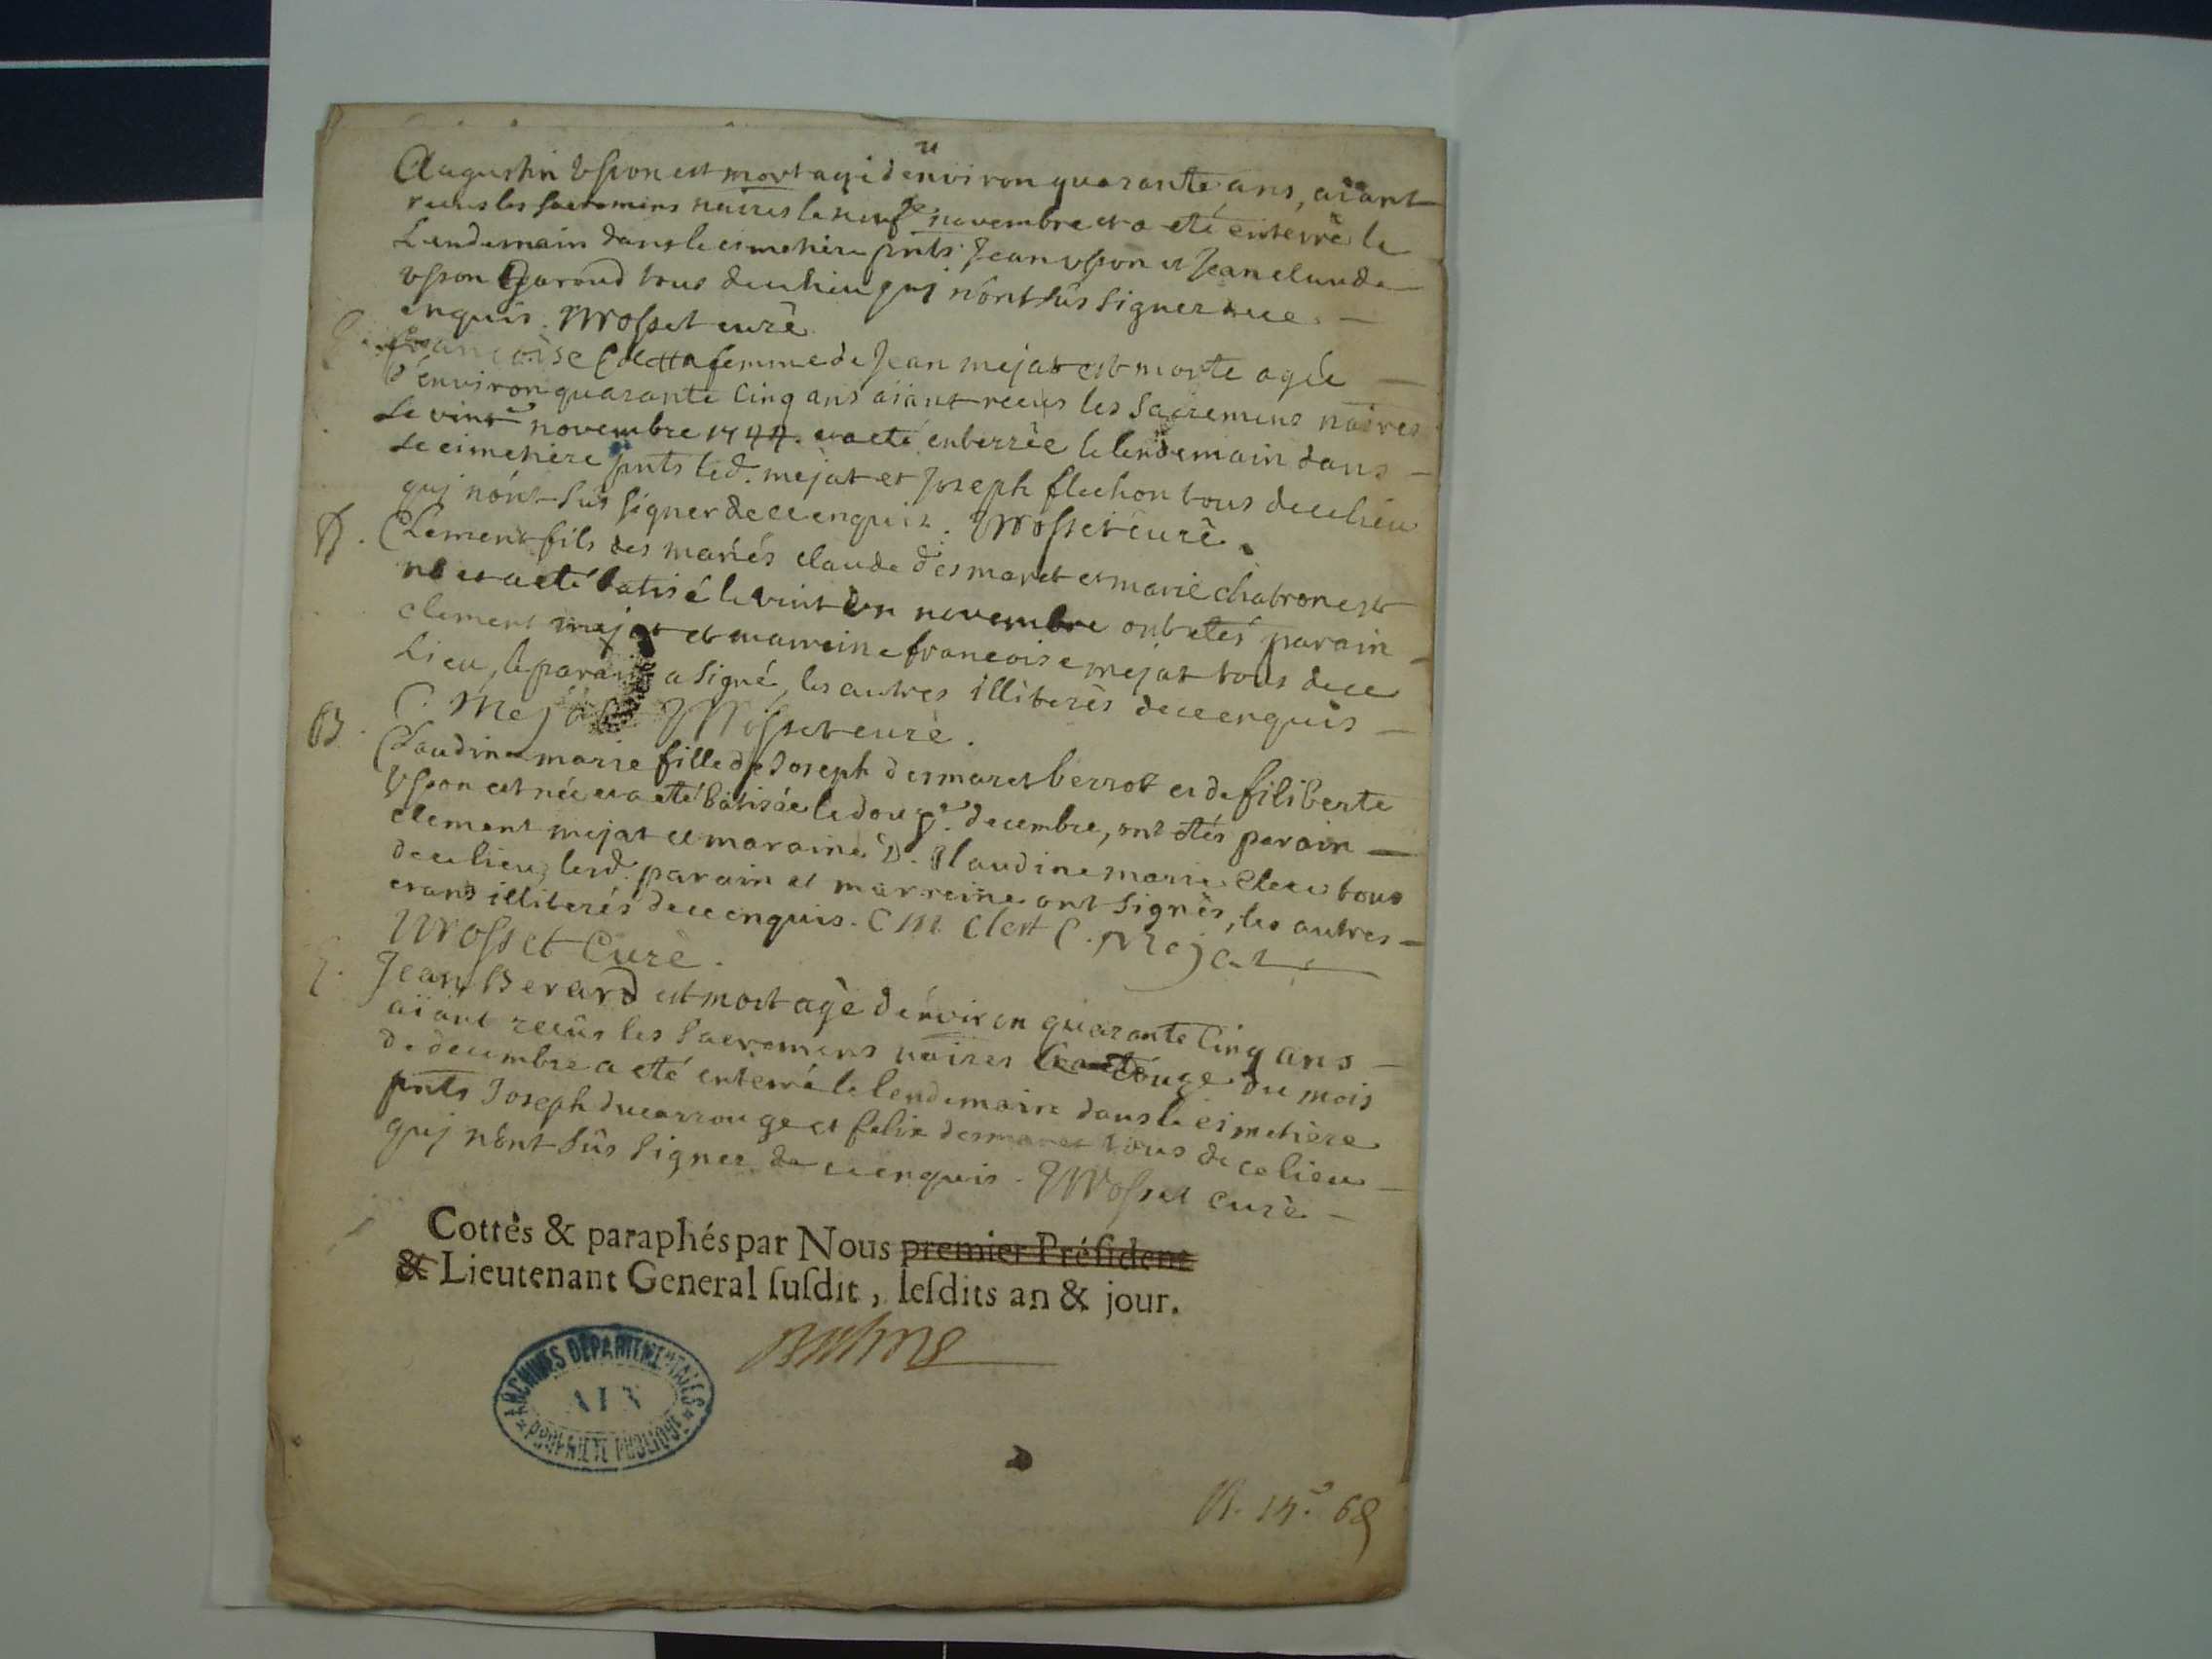 Augustin Vsson est mort agé d'environ quarante ans, aiant
recus les sacremens naires le neufe novembre et a eté enterré le
Lendemain dans le cimetiere pnts Jean vsson et Jean claude
vsson garoud tous de ce lieu quj nont sûs signer de ce
enquis. Mrosset curé
francoise Coletta femme de Jean mejat est morte agée
d'environ quarante Cinq ans aiant recus les sacremens naires
Le vint novembre 1744. et a eté enterrée le lendemain dans
Le cimetiére pnts led. mejat et Joseph flechon tous de ce lieu
quj nont sûs signer de ce enquis. Mrosset curé.
B. Clement fils des mariés claude desmaret et marie chatron est
né et a eté batisé le vint un novembre ont etés parain
clement mejat et marreine francoise mejat tous de ce
Lieu, le parain a signé, les autres illiterés de ce enquis
C. Mejat Mrosset curé.
B. Claudine marie fille de Joseph desmaret berrot et de filiberte
Vsson est née et a eté batisée le douze. decembre, ont étés parain
clement mejat et maraine D. Claudine marie Clerc tous
de ce lieu, lesd. parain et marreine ont signés, les autres
etans illiterés de ce enquis. C M Clert C. Mejat
Mrosset Curé.
Jean Berard est mort agé d'environ quarante Cinq ans
aiant recûs les Sacremens naires le douze du mois
de decembre a eté enterré le lendemain dans le cimetiére
pnts Joseph ducarrouge et felix desmaret tous de ce lieu
quj nont sûs signer de ce enquis. Mrosset Curé
Cottés & paraphés par Nous premier Présidene
& Lieutenant General susdit, lesdits an & jour.
ARCHIVES DEPARTEMENTALES
AIN
R. 14. 68